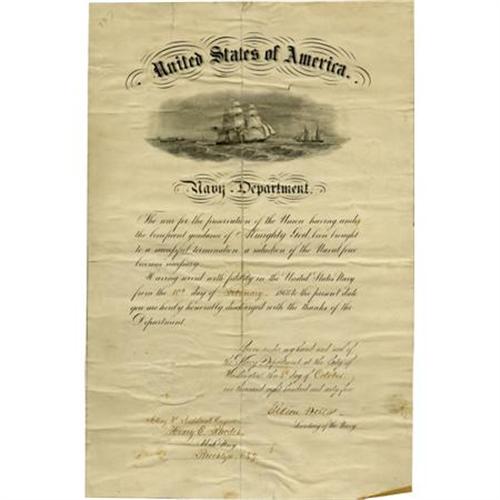 United States of America.
Navy Department.
The war for the preservation of the Union having, under
the beneficent guidance of Almighty God, been brought
to a successful termination a reduction of the Naval force
becomes necessary.
Having served with fidelity in the United States Navy
from the 10th day of February 1865 to the present date
you are hereby honorably discharged with the thanks of the
Department.
Given under my hand and seal of
Navy Department at the City of
Washington this 5th day of October
one thousand eight hundred and sixty five
Gideon Welles
Secretary of the Navy
Acting Assistant Engineer
Henry E. Rhodes
Navy
Brooklyn